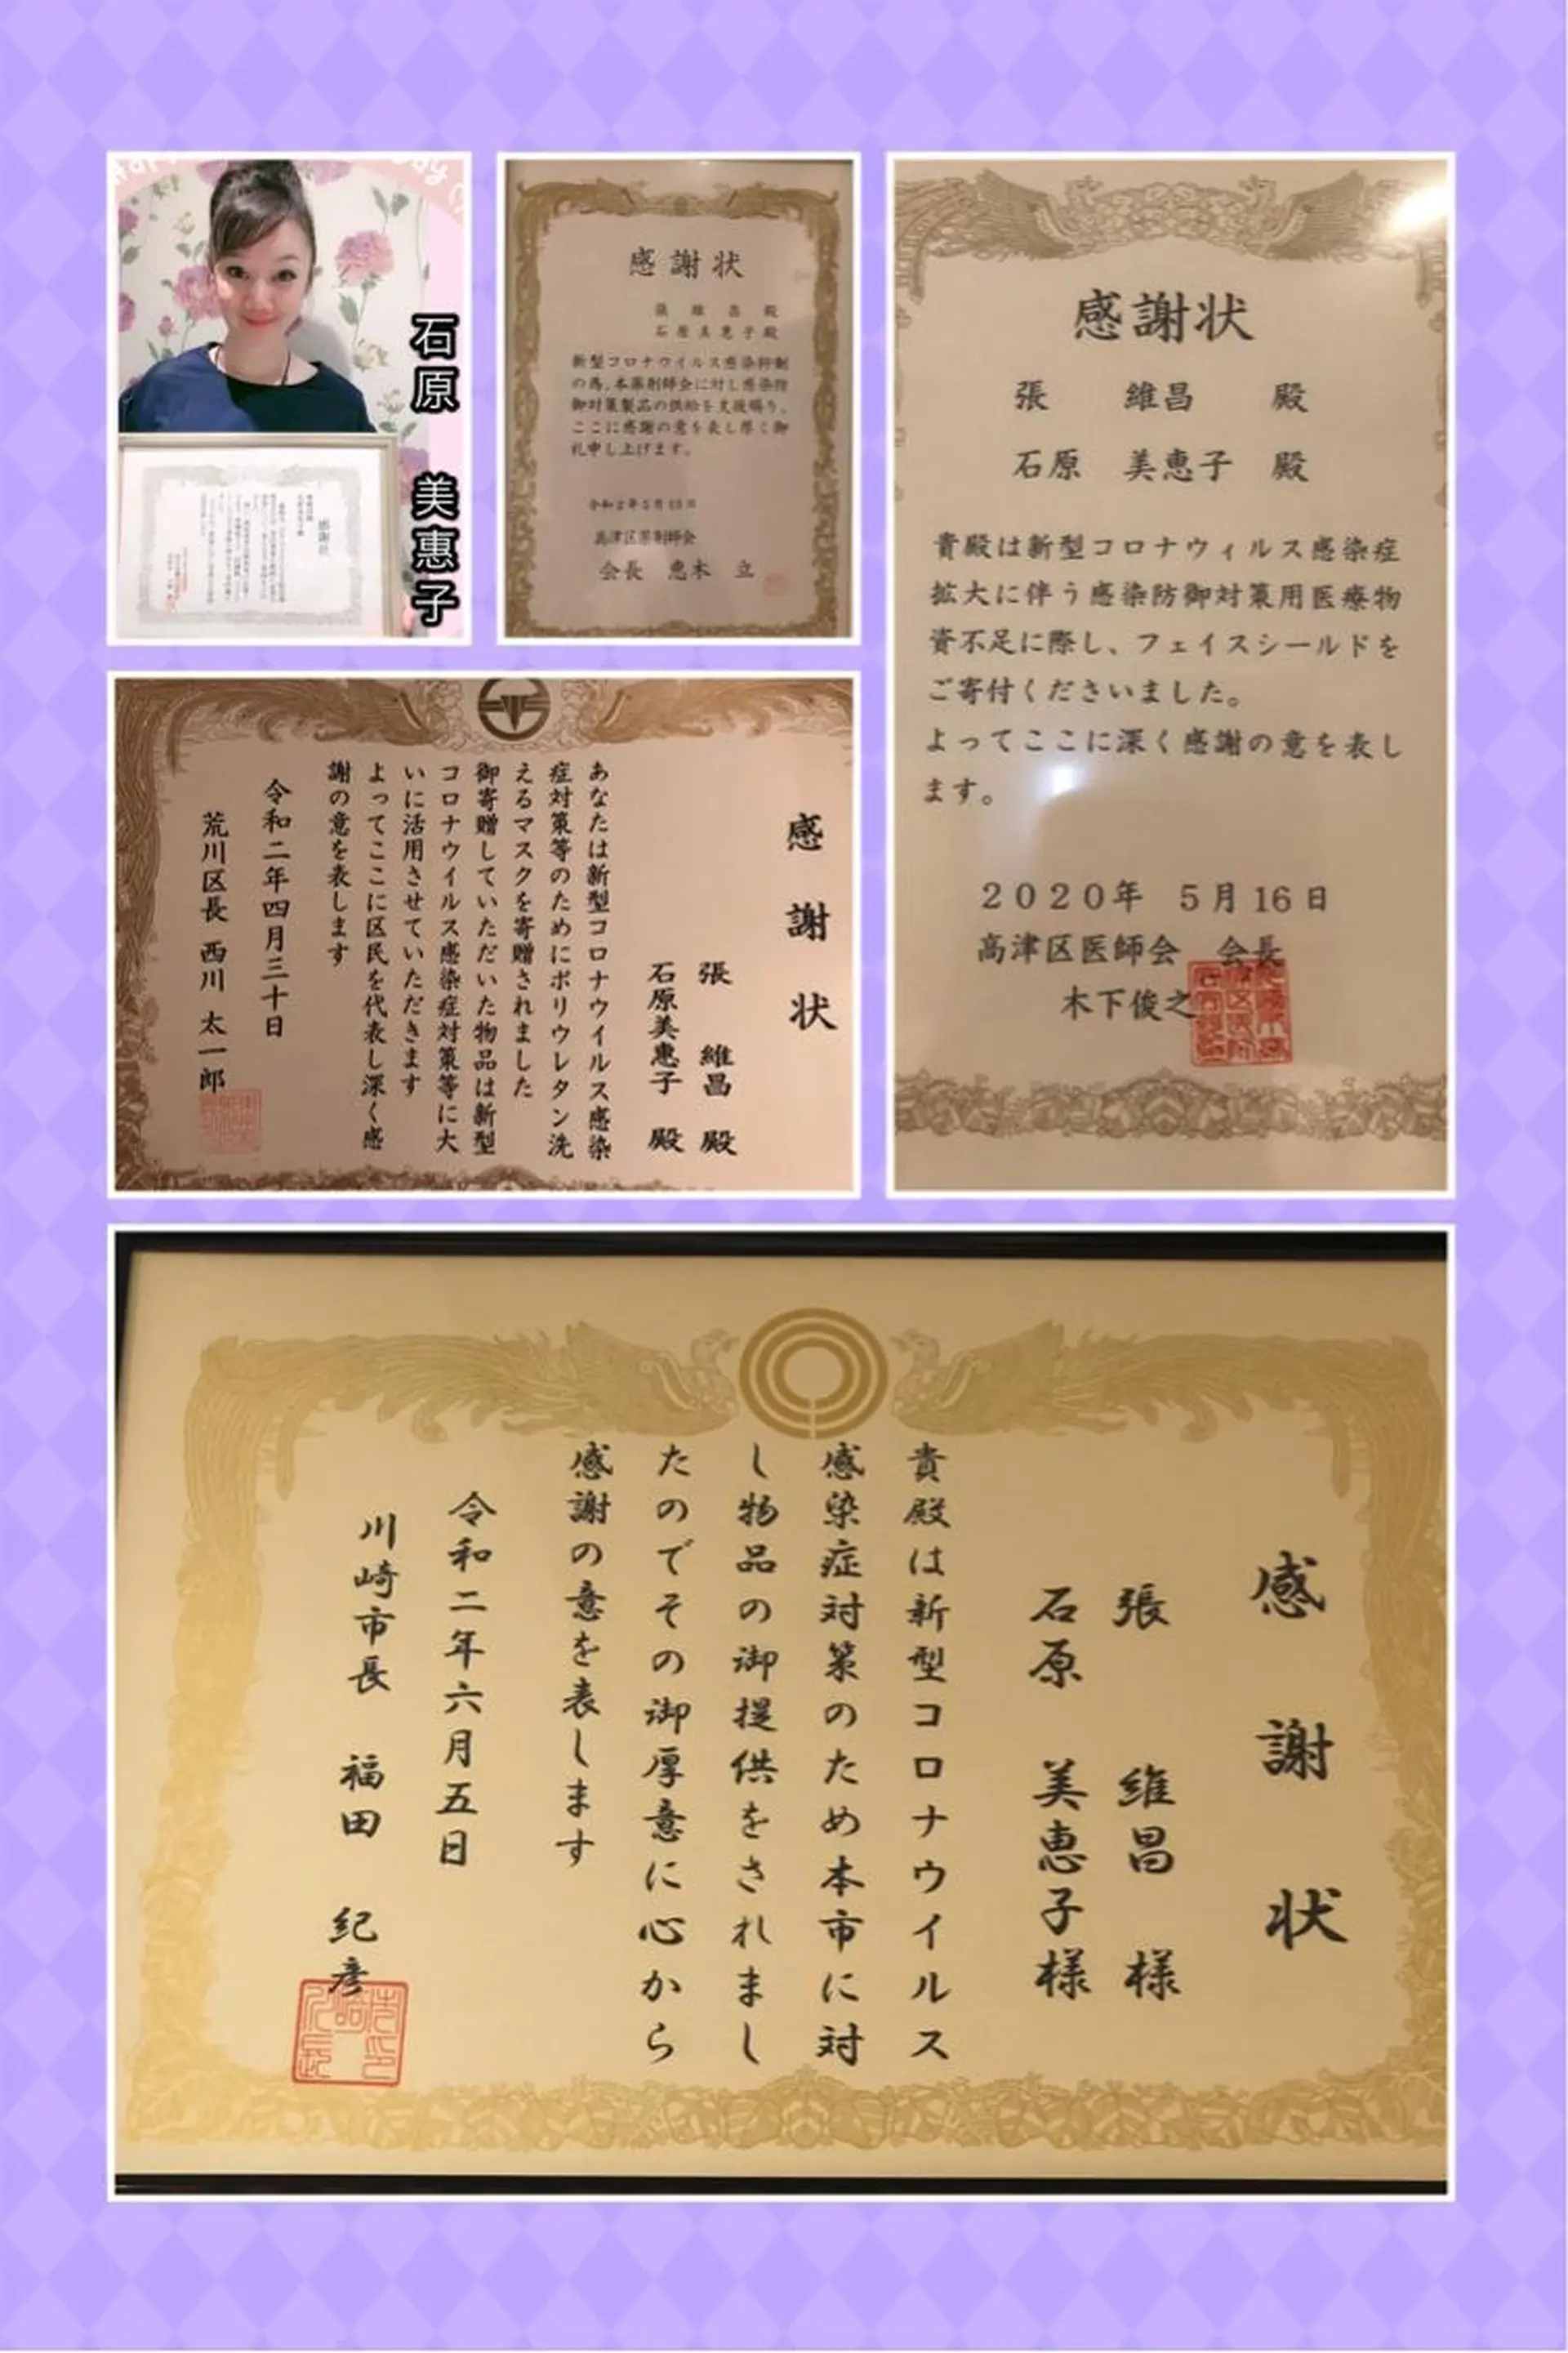 石原 美惠子
感謝状
張 維昌 殿
石原美恵子殿
新型コロナウイルス感染抑制
の為、本薬剤師会に対し感染防
御対策製品の供給を支援賜り、
ここに感謝の意を表し厚く御
礼申し上げます。
令和2年5月15日
高津区薬剤師会
会長 恵木 立
感謝状
張 維昌 殿
石原 美恵子 殿
貴殿は新型コロナウィルス感染症
拡大に伴う感染防御対策用医療物
資不足に際し、フェイスシールドを
ご寄付くださいました。
よってここに深く感謝の意を表し
ます。
2020年 5月16日
高津区医師会 会長
木下俊之
感謝状
張 維昌 殿
石原美惠子 殿
あなたは新型コロナウイルス感染
症対策等のためにポリウレタン洗
えるマスクを寄贈されました
御寄贈していただいた物品は新型
コロナウイルス感染症対策等に大
いに活用させていただきます
よってここに区民を代表し深く感
謝の意を表します
令和二年四月三十日
荒川区長 西川 太一郎
感謝状
張 維昌 様
石原 美恵子様
貴殿は新型コロナウイルス
感染症対策のため本市に対
し物品の御提供をされまし
たのでその御厚意に心から
感謝の意を表します
令和二年六月五日
川崎市長 福田 紀彦